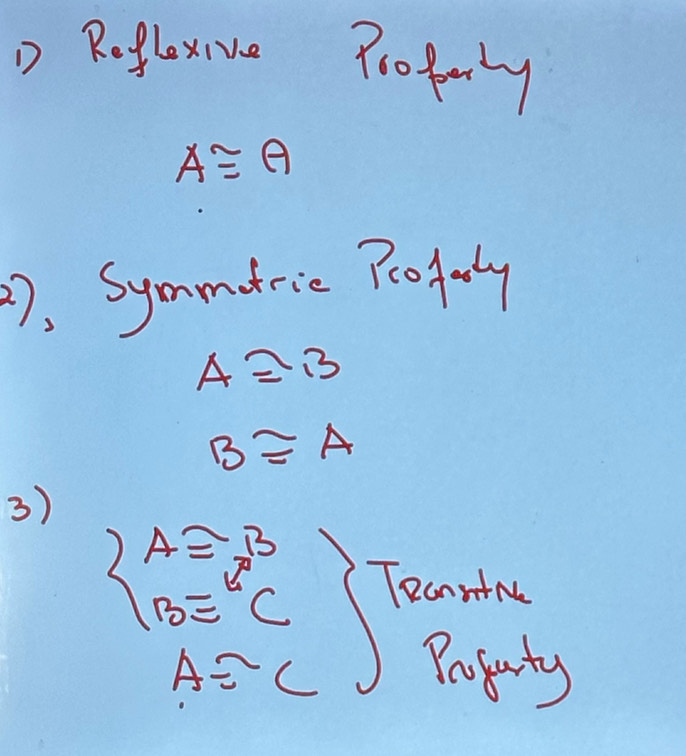 1) Reflexive Property
A ≅ A
2), Symmetric Property
A ≅ B
B ≅ A
3)
A ≅ B
B ≅ C
A ≅ C
Transitive
Property